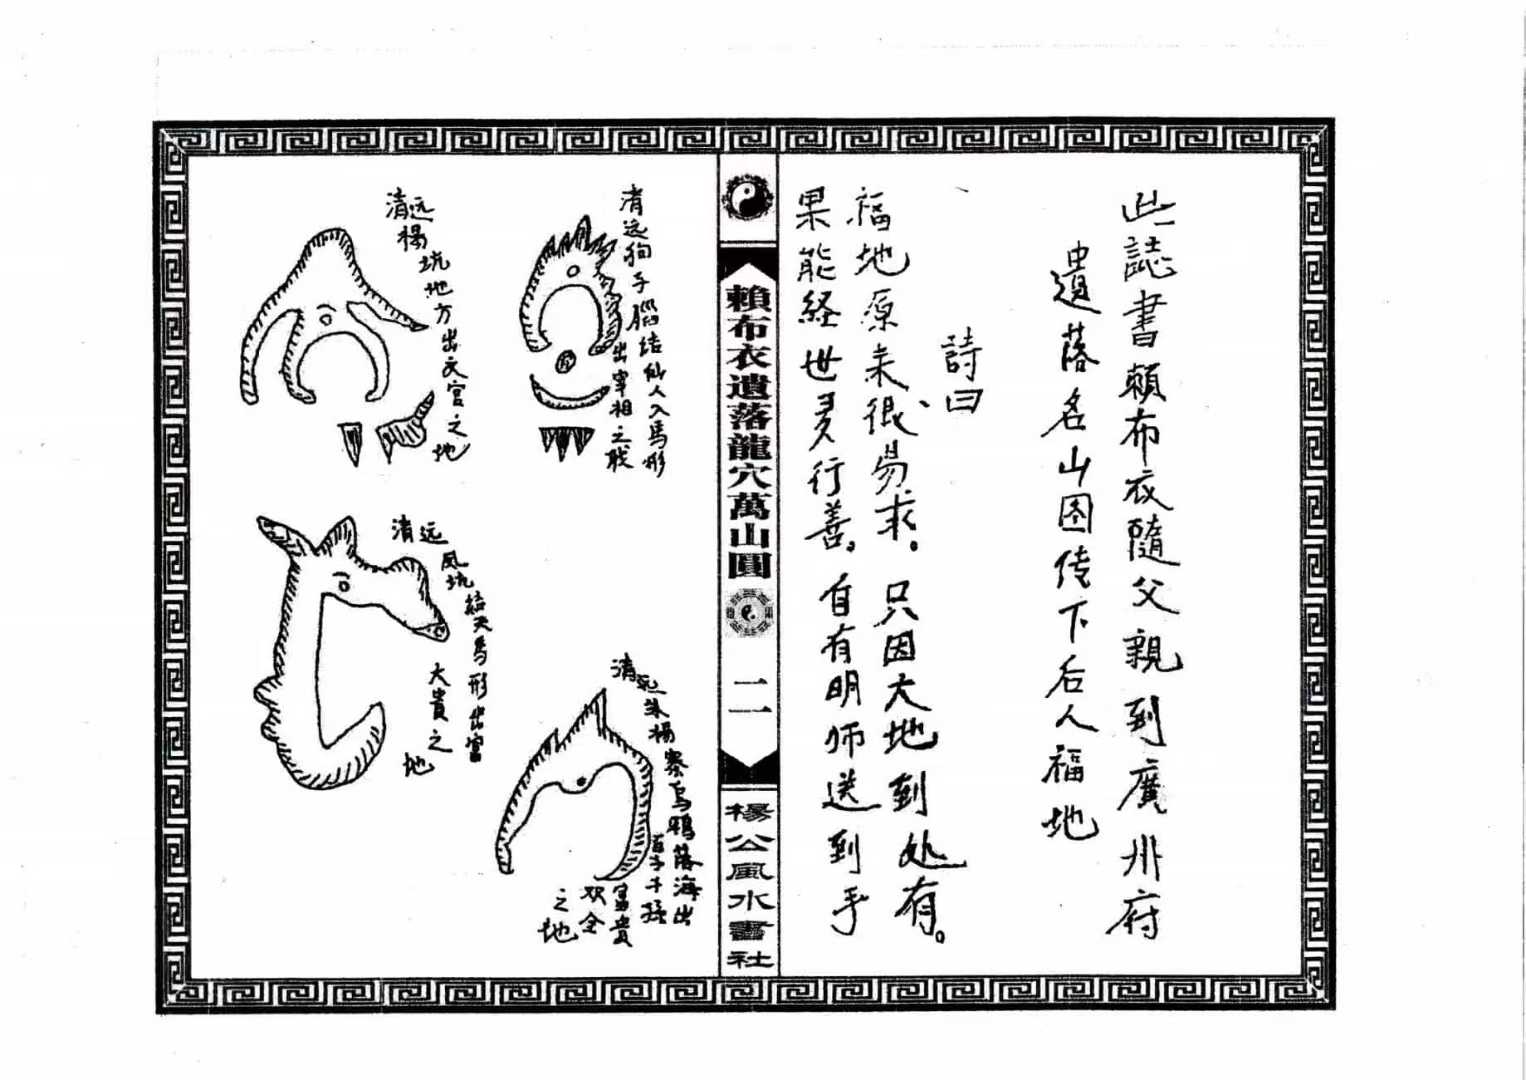 此誌書賴布衣隨父親到廣州府
遺落名山图传下后人福地
詩曰
福地原未很易求。只因大地到处有。
果能経世灵行善。自有明师送到手
賴布衣遺落龍穴萬山圓
二一
楊公風水書社
清远狗子腦结仙人入馬形
出宰相之戝
清远楊坑地方出文官之地
清远風坑結天馬形出富
大貴之地
清远朱楊寨烏鴉落海出
百子千孫
富貴
双全
之地